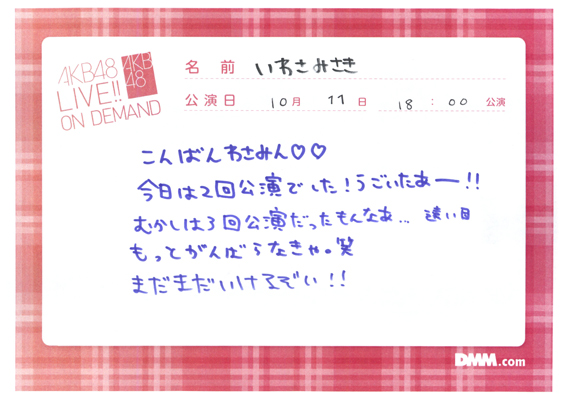 AKB48
LIVE!!
ON DEMAND
AKB
48
名前 いわさみさき
公演日 10月 11日 18:00 公演
こんばんわさみん♡♡
今日は2回公演でした!うごいたあー!!
むかしは3回公演だったもんなあ... 遠い目
もっとがんばらなきゃ。笑
まだまだいけるぞい!!
DMM.com